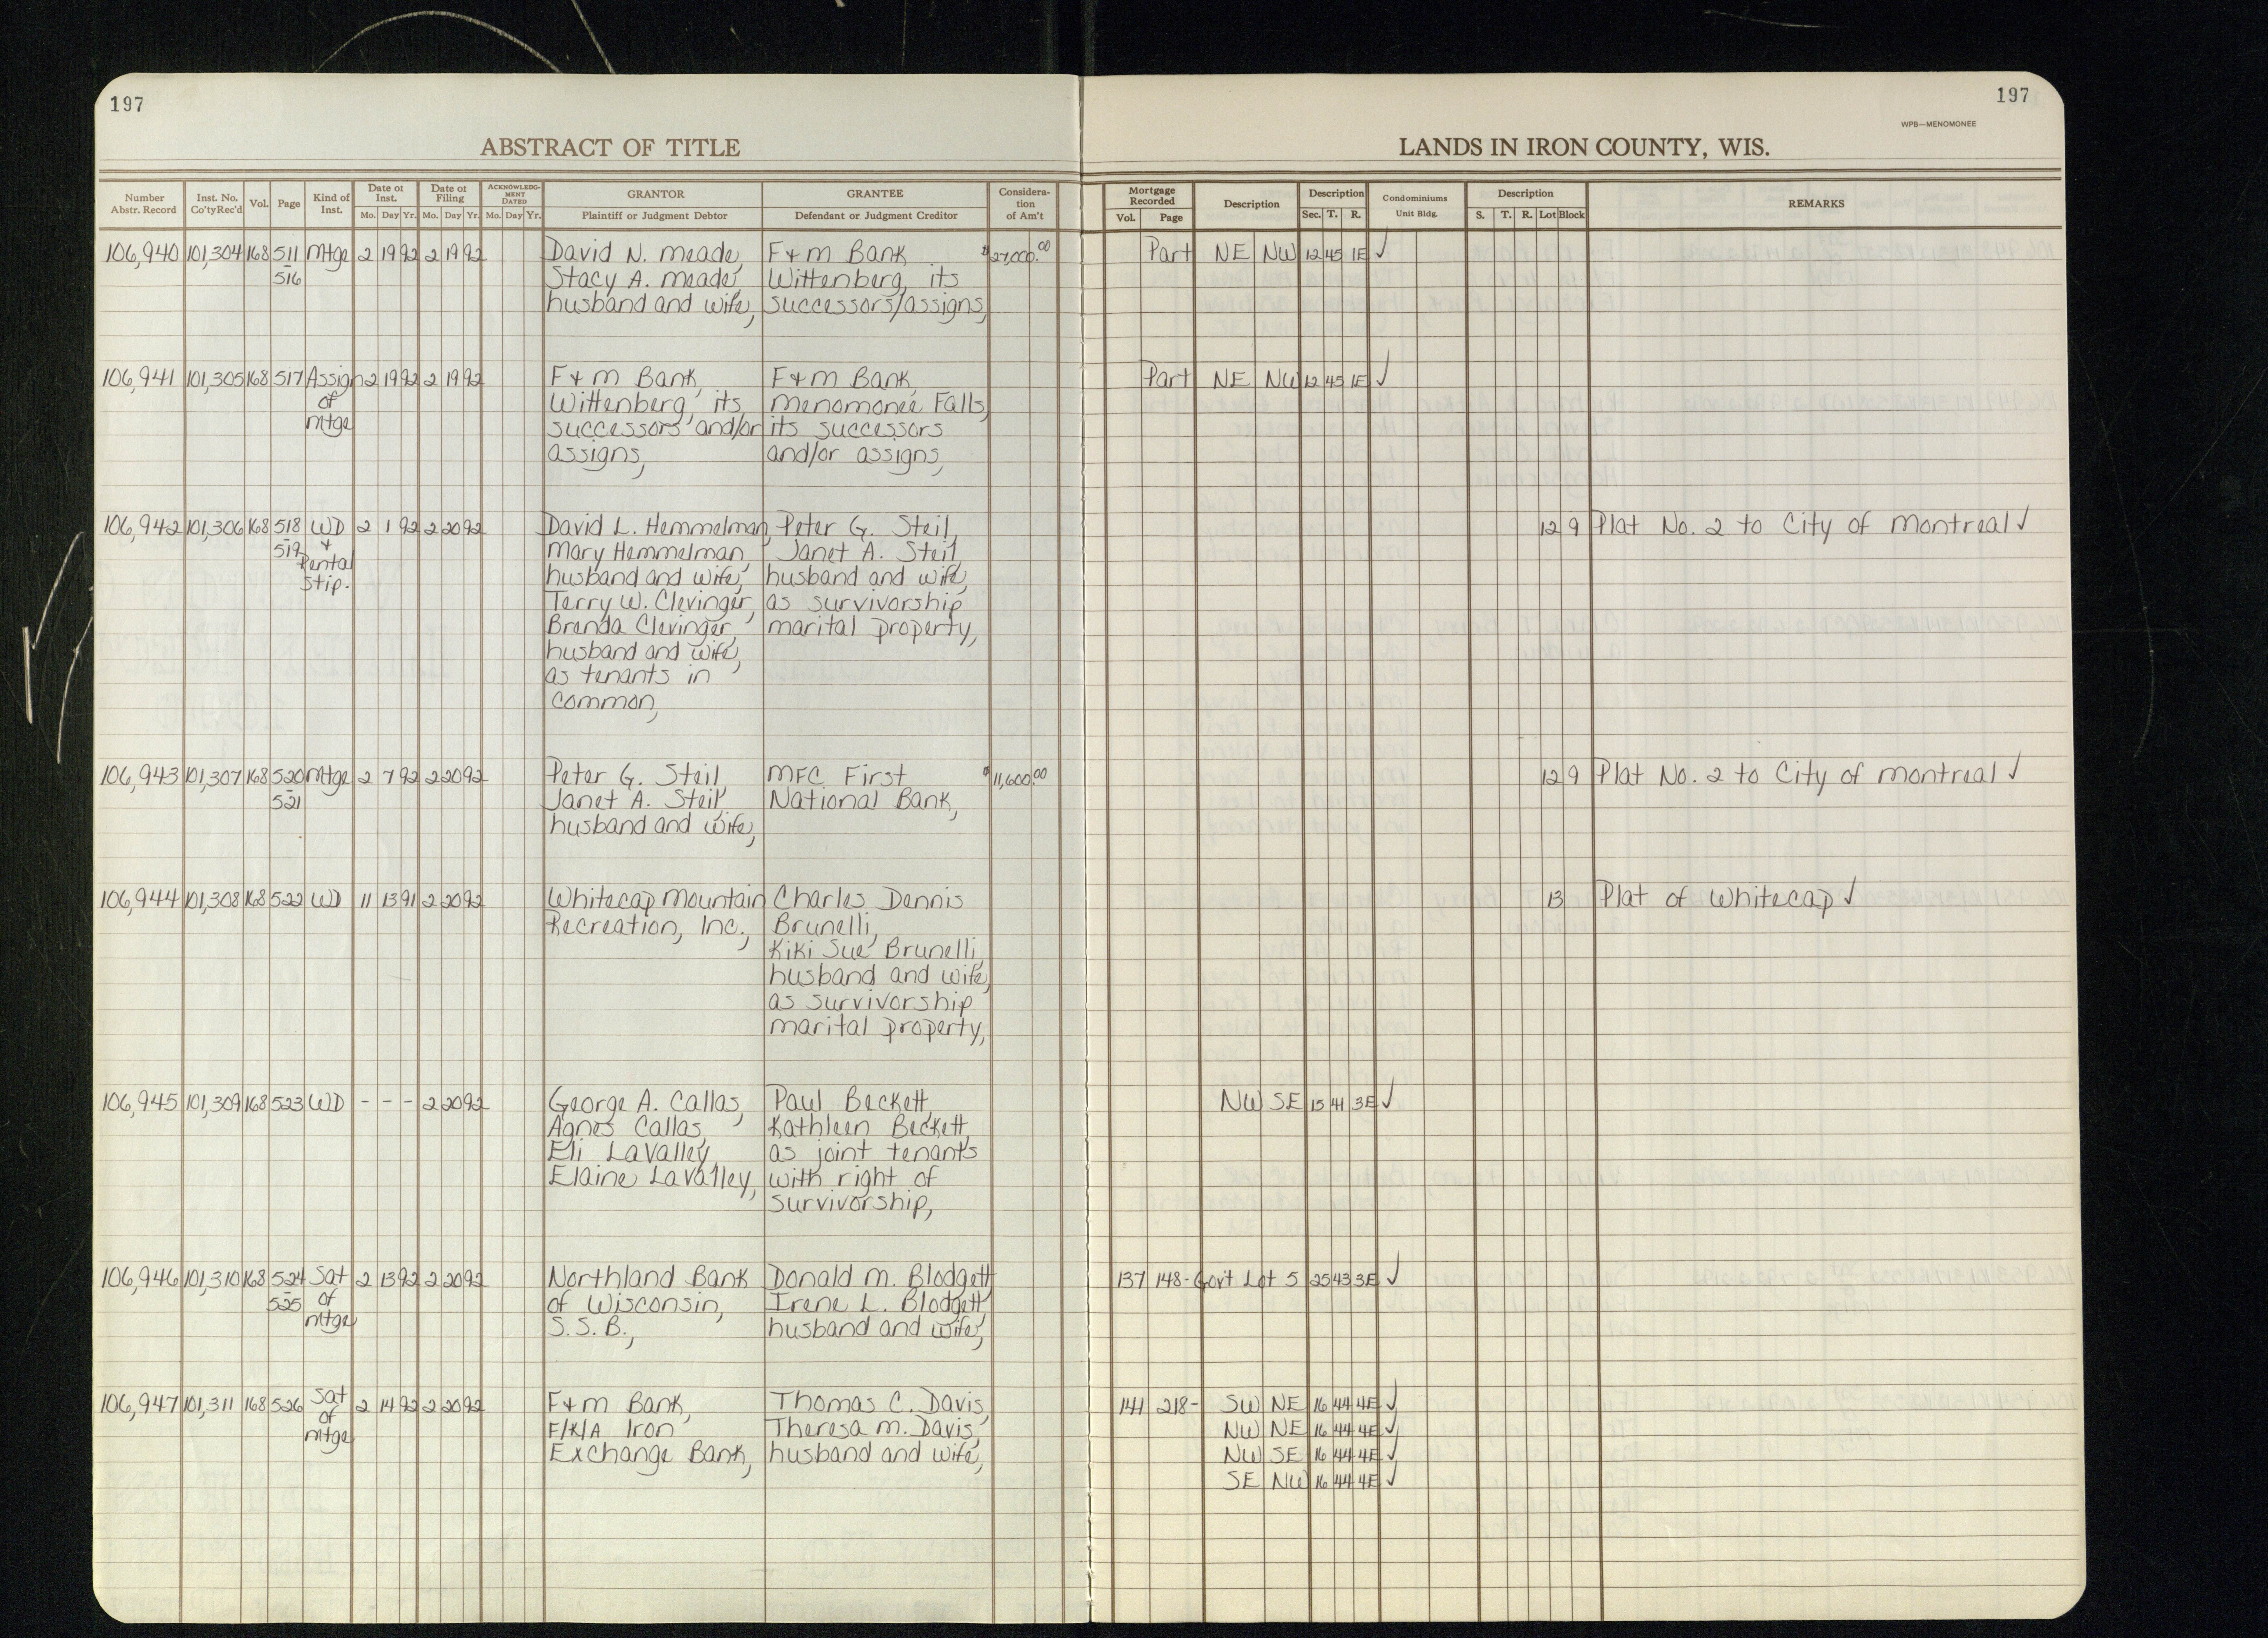 197
197
WPB—MENOMONEE
ABSTRACT OF TITLE
LANDS IN IRON COUNTY, WIS.
Number Abstr. Record
Inst. No. Co'ty Rec'd
Vol.
Page
Kind of Inst.
Date of Inst.
Mo. Day Yr.
Date of Filing
Mo. Day Yr.
ACKNOWLEDGMENT DATED
Mo. Day Yr.
GRANTOR
Plaintiff or Judgment Debtor
GRANTEE
Defendant or Judgment Creditor
Consideration of Am't
Mortgage Recorded
Vol. Page
Description
Description
Sec. T. R.
Condominiums
Unit Bldg.
Description
S. T. R. Lot Block
REMARKS
106,940 101,304 168 511 Mtge 2 19 92 2 19 92 David N. Meade, F & M Bank $27,000.00 Part NE NW 12 45 1E ✓
- 516 Stacy A. Meade, Wittenberg, its
husband and wife, successors/assigns,
106,941 101,305 168 517 Assign 2 19 92 2 19 92 F & M Bank, F & M Bank, Part NE NW 12 45 1E ✓
of Wittenberg, its Menomonee Falls,
Mtge successors and/or its successors
assigns, and/or assigns,
106,942 101,306 168 518 WD 2 1 92 2 20 92 David L. Hemmelman, Peter G. Steil, 12 9 Plat No. 2 to City of Montreal ✓
- 519 & Mary Hemmelman, Janet A. Steil,
Rental husband and wife, husband and wife,
Stip. Terry W. Clevinger, as survivorship
Brenda Clevinger, marital property,
husband and wife,
as tenants in
common,
106,943 101,307 168 520 Mtge 2 7 92 2 20 92 Peter G. Steil, MFC First $11,600.00 12 9 Plat No. 2 to City of Montreal ✓
- 521 Janet A. Steil, National Bank,
husband and wife,
106,944 101,308 168 522 WD 11 13 91 2 20 92 Whitecap Mountain Charles Dennis 13 Plat of Whitecap ✓
Recreation, Inc., Brunelli,
Kiki Sue Brunelli,
husband and wife,
as survivorship
marital property,
106,945 101,309 168 523 WD - - - 2 20 92 George A. Callas, Paul Beckett, NW SE 15 41 3E ✓
Agnes Callas, Kathleen Beckett,
Eli LaValley, as joint tenants
Elaine LaValley, with right of
survivorship,
106,946 101,310 168 524 Sat 2 13 92 2 20 92 Northland Bank Donald M. Blodgett, 137 148- Gov't Lot 5 25 43 3E ✓
- 525 of of Wisconsin, Irene L. Blodgett,
Mtge S.S.B., husband and wife,
106,947 101,311 168 526 Sat 2 14 92 2 20 92 F & M Bank, Thomas C. Davis, 141 218- SW NE 16 44 4E ✓
of F/K/A Iron Theresa M. Davis, NW NE 16 44 4E ✓
Mtge Exchange Bank, husband and wife, NW SE 16 44 4E ✓
SE NW 16 44 4E ✓